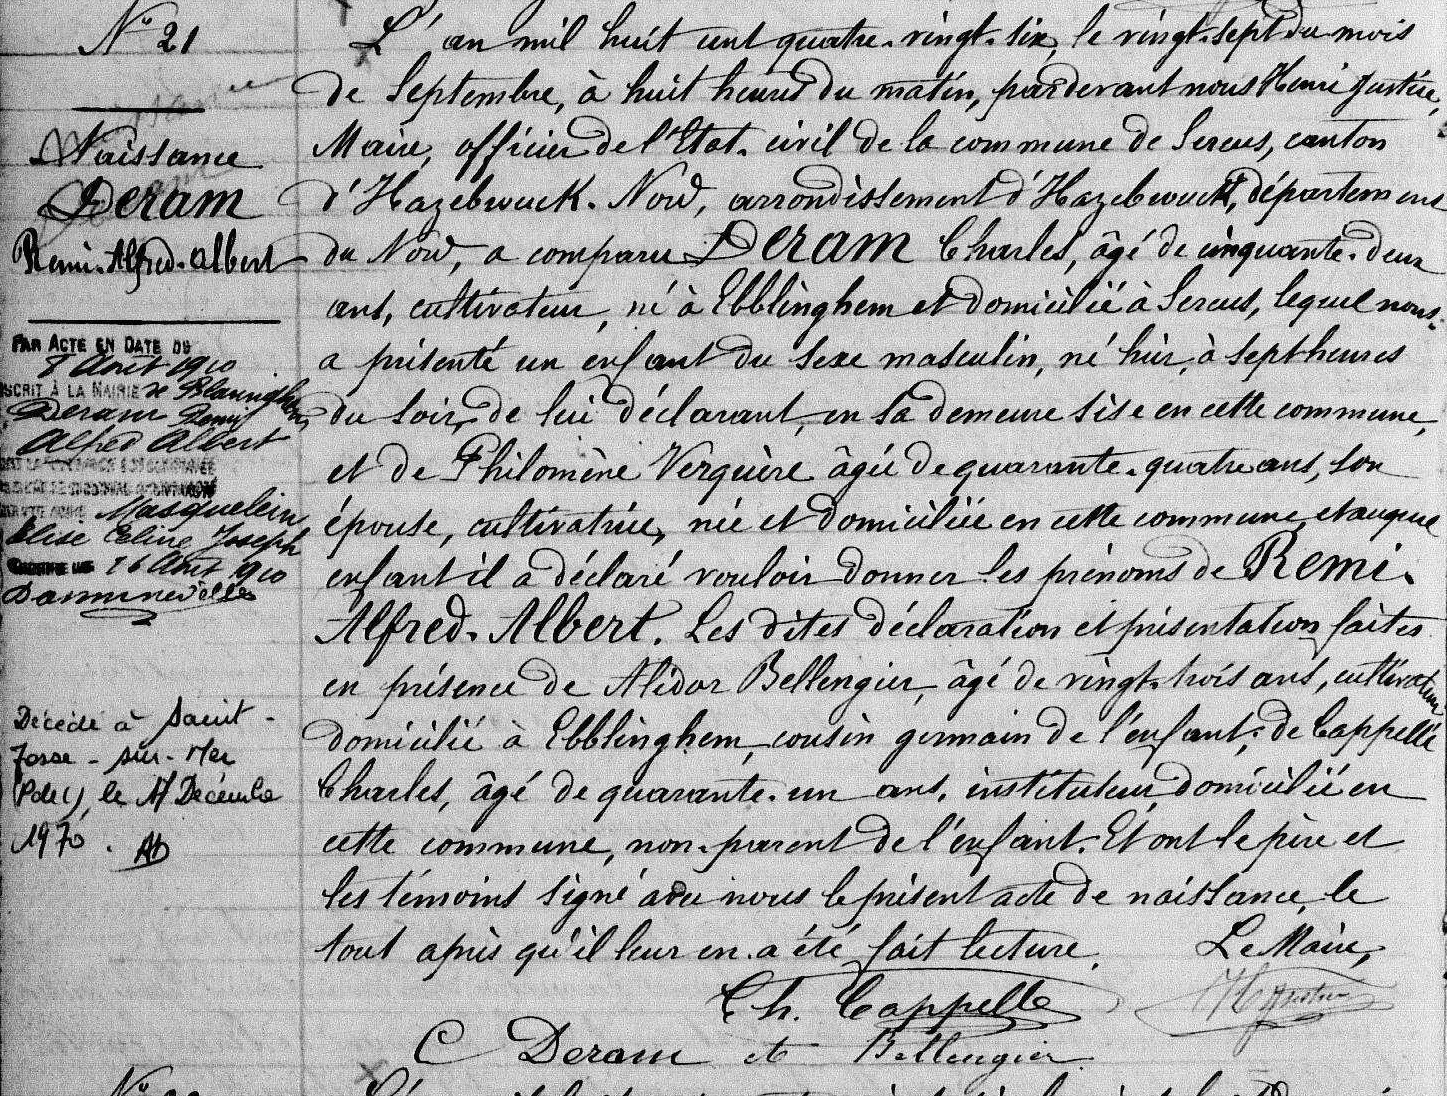 N° 21
Naissance
Deram
Remi-Alfred-Albert
PAR ACTE EN DATE DU
8 Août 1910
INSCRIT À LA MAIRIE de Blaringhem
Deram Remi
Alfred Albert
Masquelein
Elise Céline Joseph
16 Août 1910
Dannineville
Décédé à Saint-
Josse-sur-Mer
(P de C), le 17 Décembre
1970.
L'an mil huit cent quatre-vingt-six, le vingt-sept du mois
de Septembre, à huit heures du matin, pardevant nous Henri Justice,
Maire, officier de l'Etat-civil de la commune de Sercus, canton
d'Hazebrouck-Nord, arrondissement d'Hazebrouck, département
du Nord, a comparu Deram Charles, âgé de cinquante-deux
ans, cultivateur, né à Ebblinghem et domicilié à Sercus, lequel nous
a présenté un enfant du sexe masculin, né hier, à sept heures
du soir, de lui déclarant, en sa demeure sise en cette commune,
et de Philomène Verquère âgée de quarante-quatre ans, son
épouse, cultivatrice, née et domiciliée en cette commune, et auquel
enfant il a déclaré vouloir donner les prénoms de Remi-
Alfred-Albert. Les dites déclaration et présentation faites
en présence de Alidor Bellengier, âgé de vingt-trois ans, cultivateur
domicilié à Ebblinghem, cousin germain de l'enfant; de Cappelle
Charles, âgé de quarante-un ans, instituteur, domicilié en
cette commune, non-parent de l'enfant. Et ont le père et
les témoins signé avec nous le présent acte de naissance, le
tout après qu'il leur en a été fait lecture. Le Maire,
Ch. Cappelle
H Justice
C Deram
A Bellengier